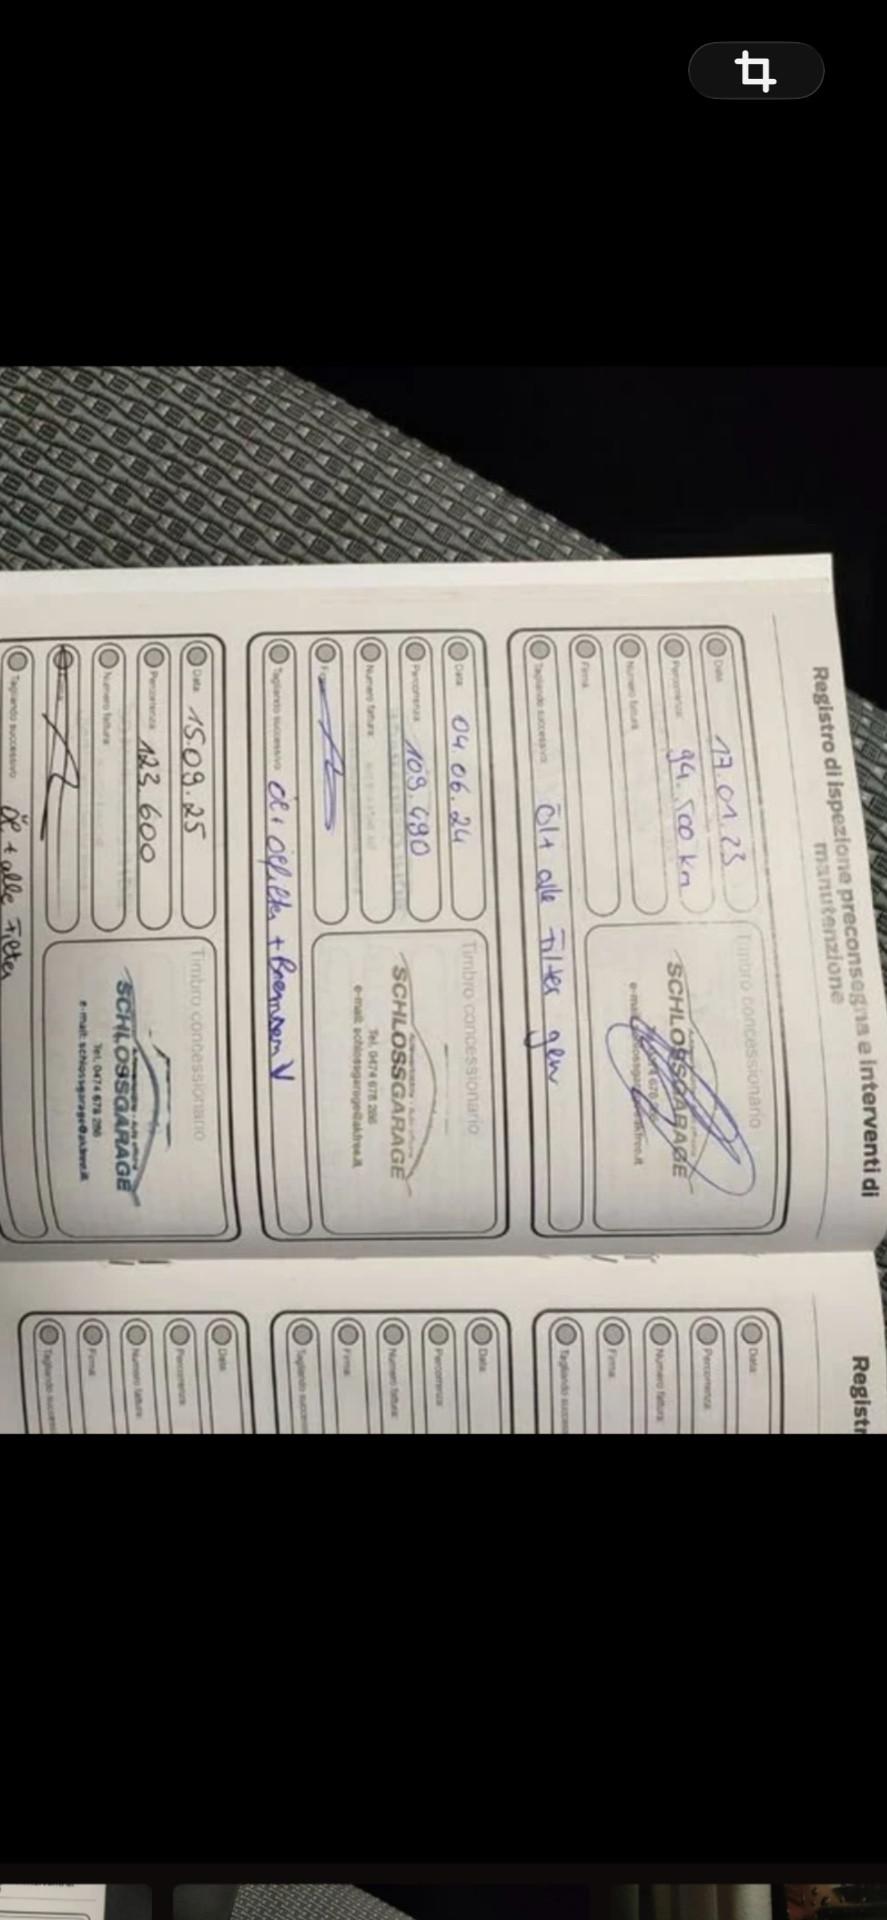 Registro di ispezione preconsegna e interventi di
manutenzione
Data 17.01.23
Percorrenza 94.500 km
Numero fattura
Firma
Tagliando successivo Öl+ alle Filter gew
Timbro concessionario
SCHLOSSGARAGE
Data 04.06.24
Percorrenza 109.490
Numero fattura
Tagliando successivo Öl+ Ölfilter + Bremsen V
Timbro concessionario
SCHLOSSGARAGE
Tel. 0474 678 286
e-mail: schlossgarage@akfree.it
Data 15.09.25
Percorrenza 123.600
Numero fattura
Tagliando successivo Öl + alle Filter
Timbro concessionario
SCHLOSSGARAGE
Tel. 0474 678 286
e-mail: schlossgarage@akfree.it
Registr
Data
Percorrenza
Numero fattura
Firma
Tagliando success
Data
Percorrenza
Numero fattura
Firma
Tagliando success
Data
Percorrenza
Numero fattura
Firma
Tagliando success